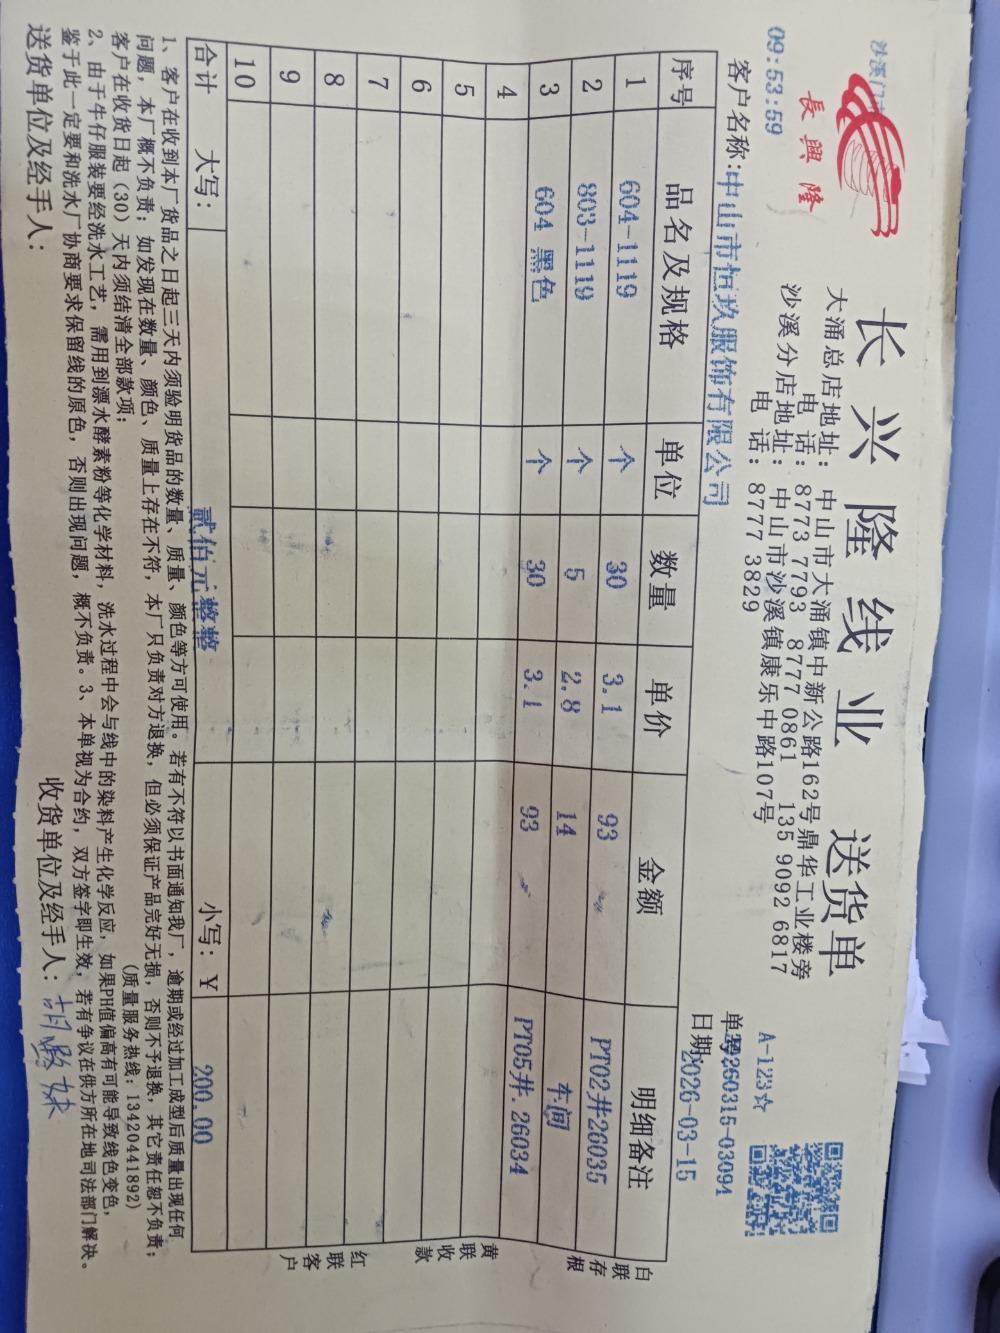 長興隆
09:53:59
长兴隆线业 送货单
大涌总店地址：中山市大涌镇中新公路162号鼎华工业楼旁
电 话：8773 7793 8777 0861 135 9092 6817
沙溪分店地址：中山市沙溪镇康乐中路107号
电 话：8777 3829
A-123☆
单号 20260315-03094
客户名称:中山市恒玖服饰有限公司 日期:2026-03-15
序号 品名及规格 单位 数量 单价 金额 明细备注
1 604-1119 个 30 3.1 93 PT02井26035
2 803-1119 个 5 2.8 14 车间
3 604 黑色 个 30 3.1 93 PT05井.26034
4
5
6
7
8
9
10
合计 大写： 贰佰元整整 小写：¥ 200.00
白联存根
黄联收款
红联客户
1、客户在收到本厂货品之日起三天内须验明货品的数量、质量、颜色等方可使用。若有不符以书面通知我厂，逾期或经过加工成型后质量出现任何
问题，本厂概不负责；如发现在数量、颜色、质量上存在不符，本厂只负责对方退换，但必须保证产品完好无损，否则不予退换，其它责任恕不负责；
客户在收货日起（30）天内须结清全部款项； （质量服务热线：13420441892）
2、由于牛仔服装要经洗水工艺，需用到漂水酵素粉等化学材料，洗水过程中会与线中的染料产生化学反应，如果PH值偏高有可能导致线色变色，
鉴于此一定要和洗水厂协商要求保留线的原色，否则出现问题，概不负责。3、本单视为合约，双方签字即生效，若有争议在供方所在地司法部门解决。
送货单位及经手人： 收货单位及经手人：